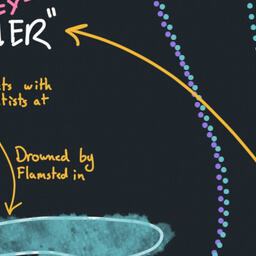 EY-
ER"
ts with
tists at
Drowned by
Flamsted in